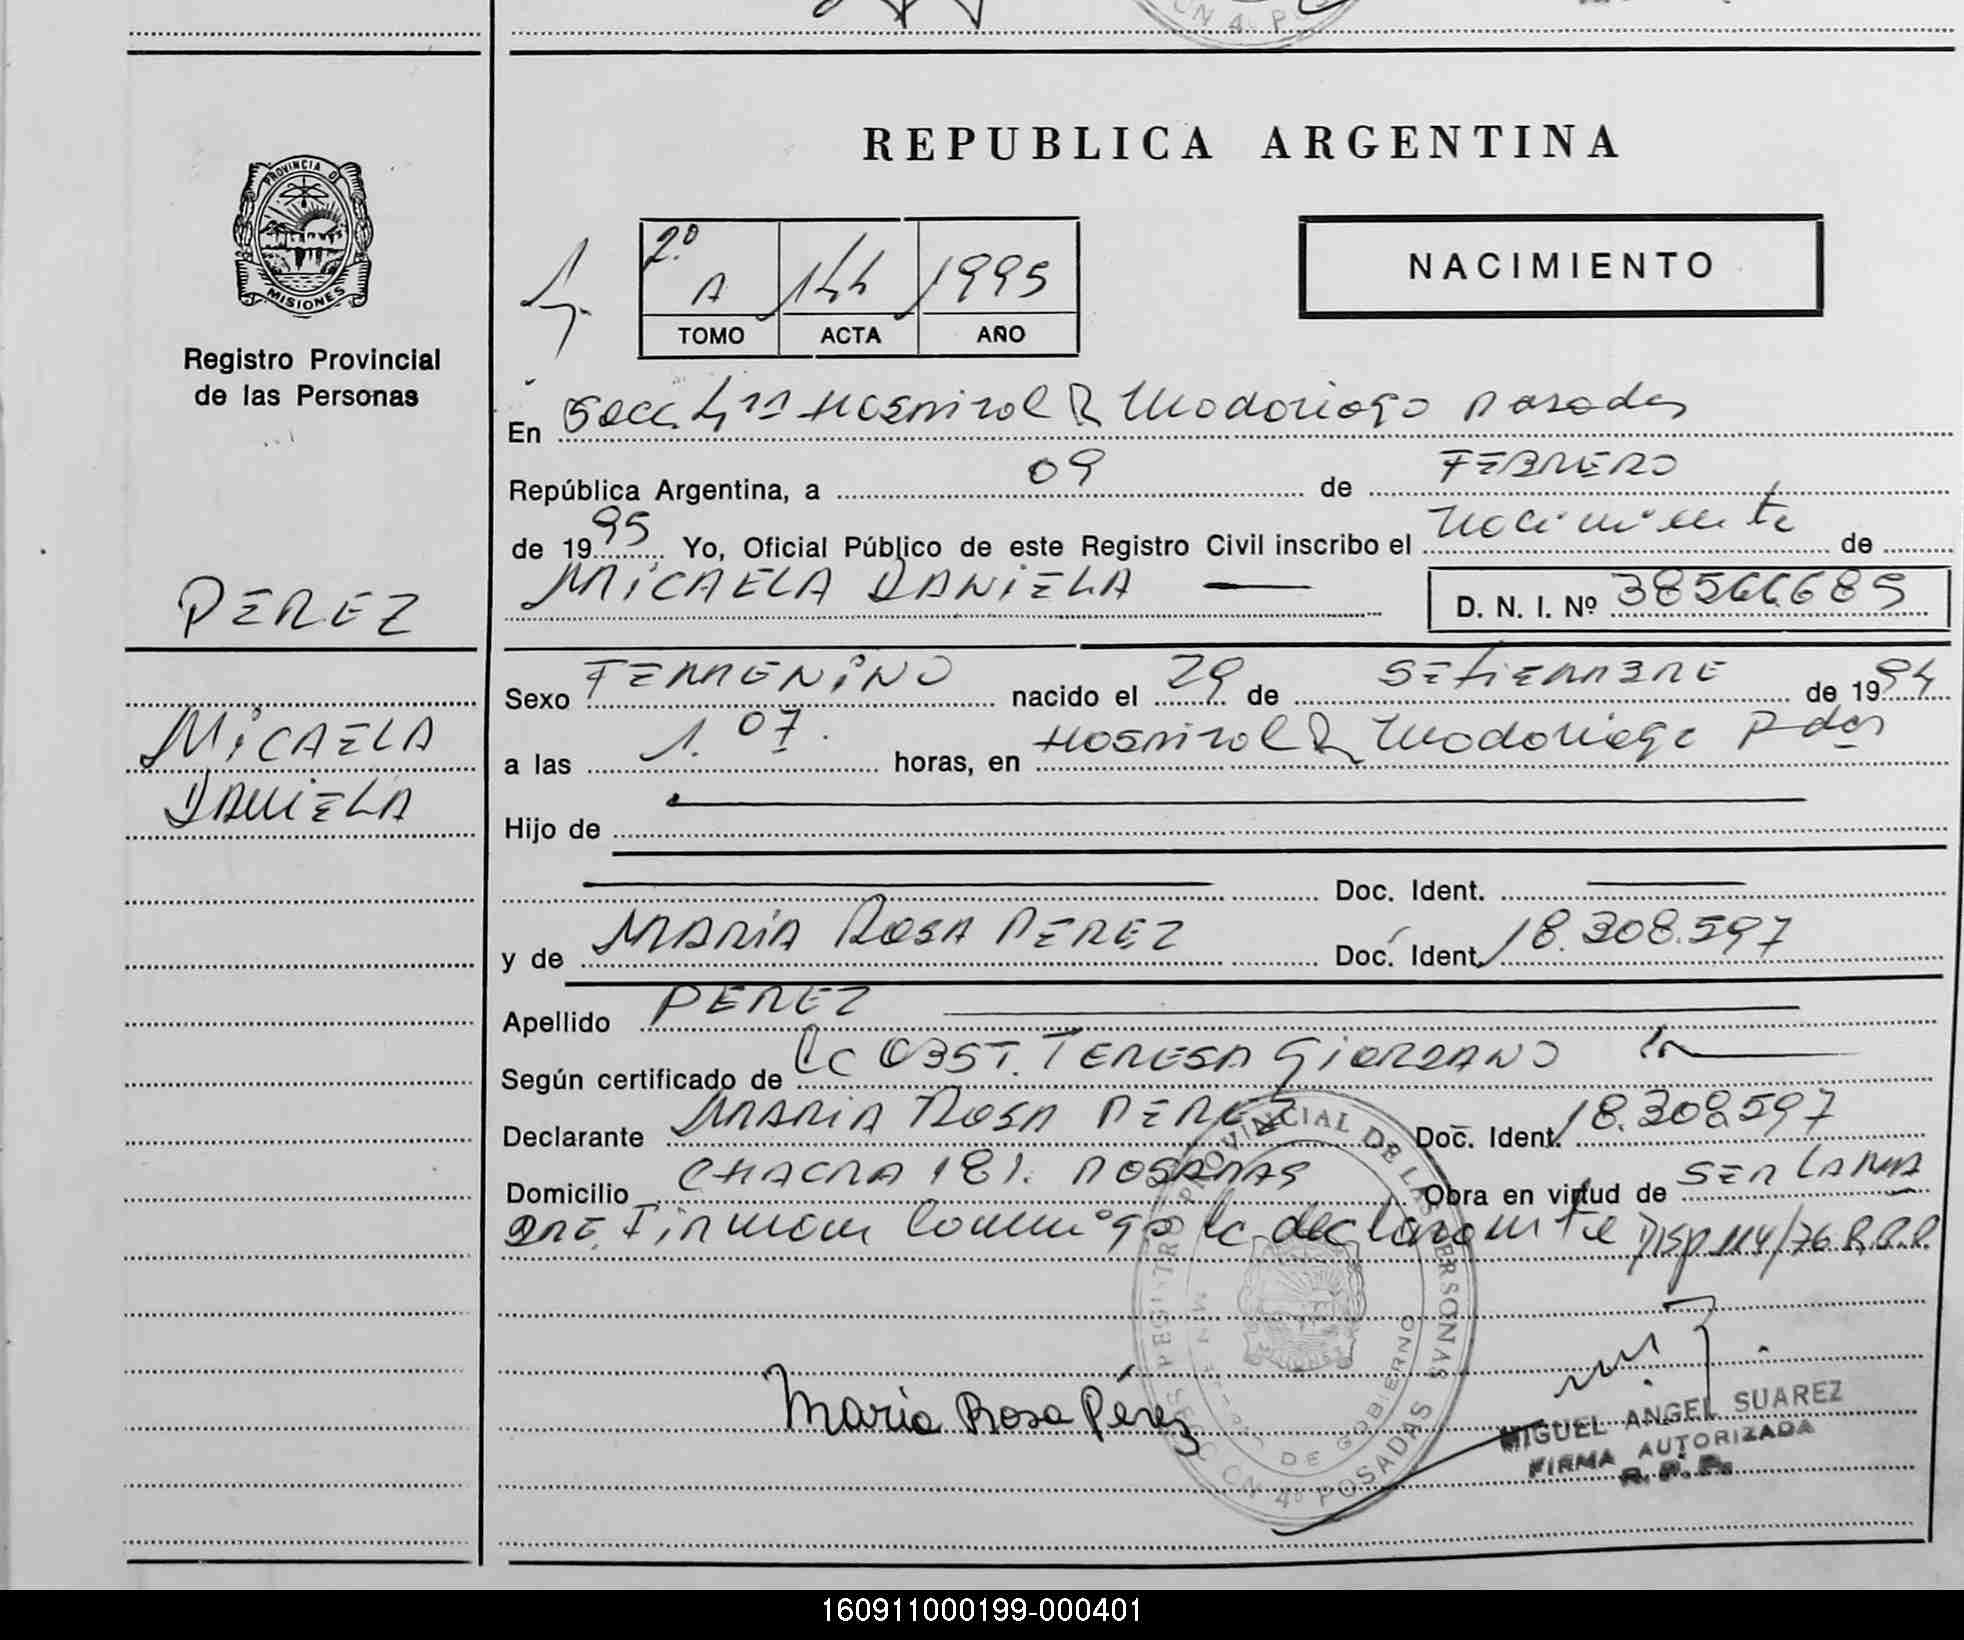 REPUBLICA ARGENTINA
PROVINCIA D
MISIONES
Registro Provincial
de las Personas
2º A 144 1995
TOMO ACTA AÑO
NACIMIENTO
En Secc. 4ta Hospital R Madariaga Posadas
República Argentina, a 09 de FEBRERO
de 1995 Yo, Oficial Público de este Registro Civil inscribo el Nacimiento de
MICAELA DANIELA
D. N. I. Nº 38566689
PEREZ
MICAELA
DANIELA
Sexo FEMENINO nacido el 29 de SETIEMBRE de 1994
a las 1.07. horas, en Hospital R Madariaga Pdas
Hijo de
Doc. Ident.
y de MARIA ROSA PEREZ Doc. Ident. 18.308.597
Apellido PEREZ
Según certificado de OBST. TERESA GIORDANO
Declarante MARIA ROSA PEREZ Doc. Ident. 18.308.597
Domicilio CHACRA 181. POSADAS Obra en virtud de SER LA MA
DRE. Firman conmigo la declarante Disp 114/76 R.P.P.
REGISTRO PROVINCIAL DE LAS PERSONAS
DE GOBIERNO
SECCION 4º POSADAS
María Rosa Pérez
MIGUEL ANGEL SUAREZ
FIRMA AUTORIZADA
R. P. P.
160911000199-000401